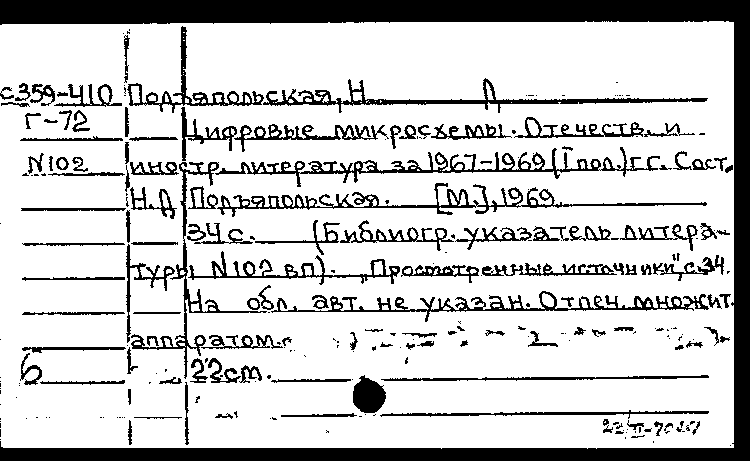 с359-410 Подъяпольская, Н. Д
Г-72
Цифровые микросхемы. Отечеств. и
N102 иностр. литература за 1967-1969 (I пол.) гг. Сост.
Н.Д. Подъяпольская. [М.], 1969.
34 с. (Библиогр. указатель литера-
туры N102 вп). „Просмотренные источники", с.34.
На обл. авт. не указан. Отпеч. множит.
аппаратом.
б 22 см.